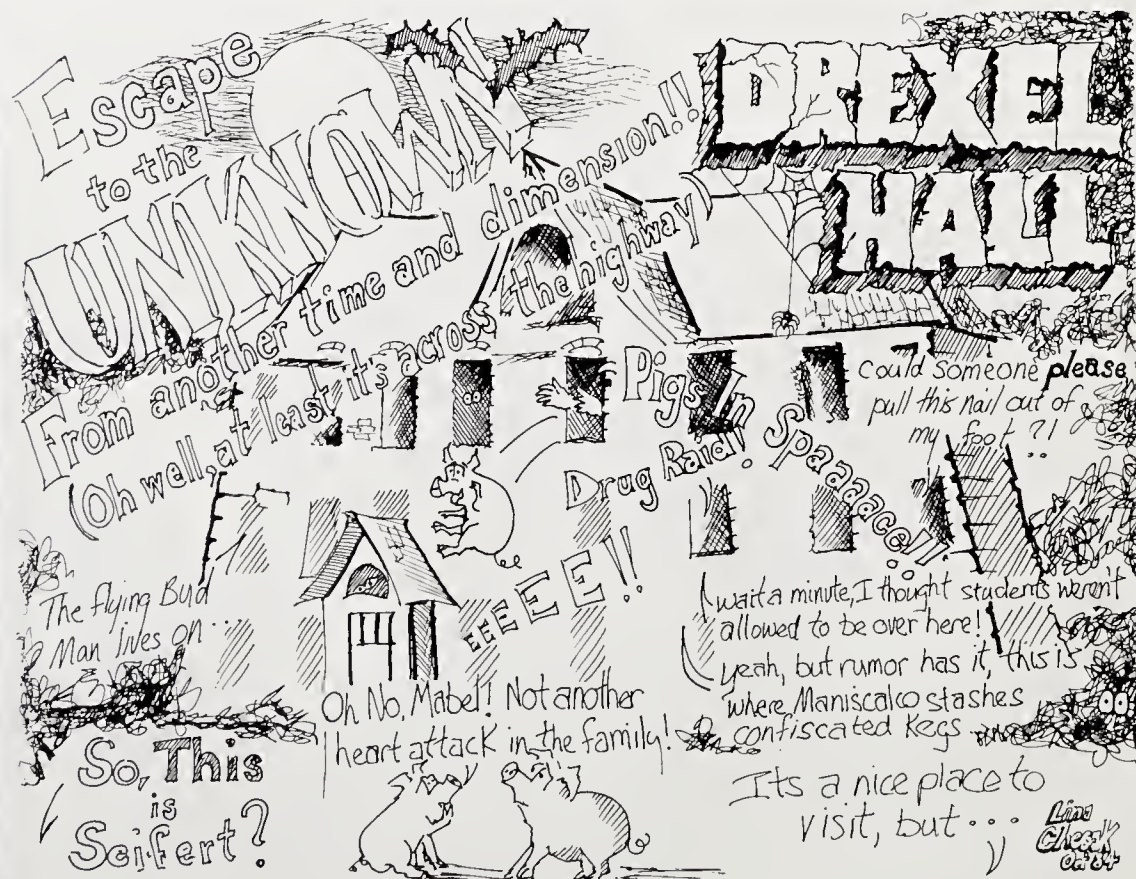 Escape
to the
UNKNOWN!
From another time and dimension!!
(Oh well, at least it's across the highway)
DREXEL
HALL
Pigs In
Spaaaace!!
Drug Raid!
Could someone please
pull this nail out of
my foot?!
EEEEE!!
The flying Bud
Man lives on...
wait a minute, I thought students weren't
allowed to be over here!
yeah, but rumor has it, this is
where Maniscalco stashes
confiscated kegs
Oh No, Mabel! Not another
heart attack in the family!
So, This
is
Seifert?
Its a nice place to
visit, but...
Lina
Chesak
Oct '84